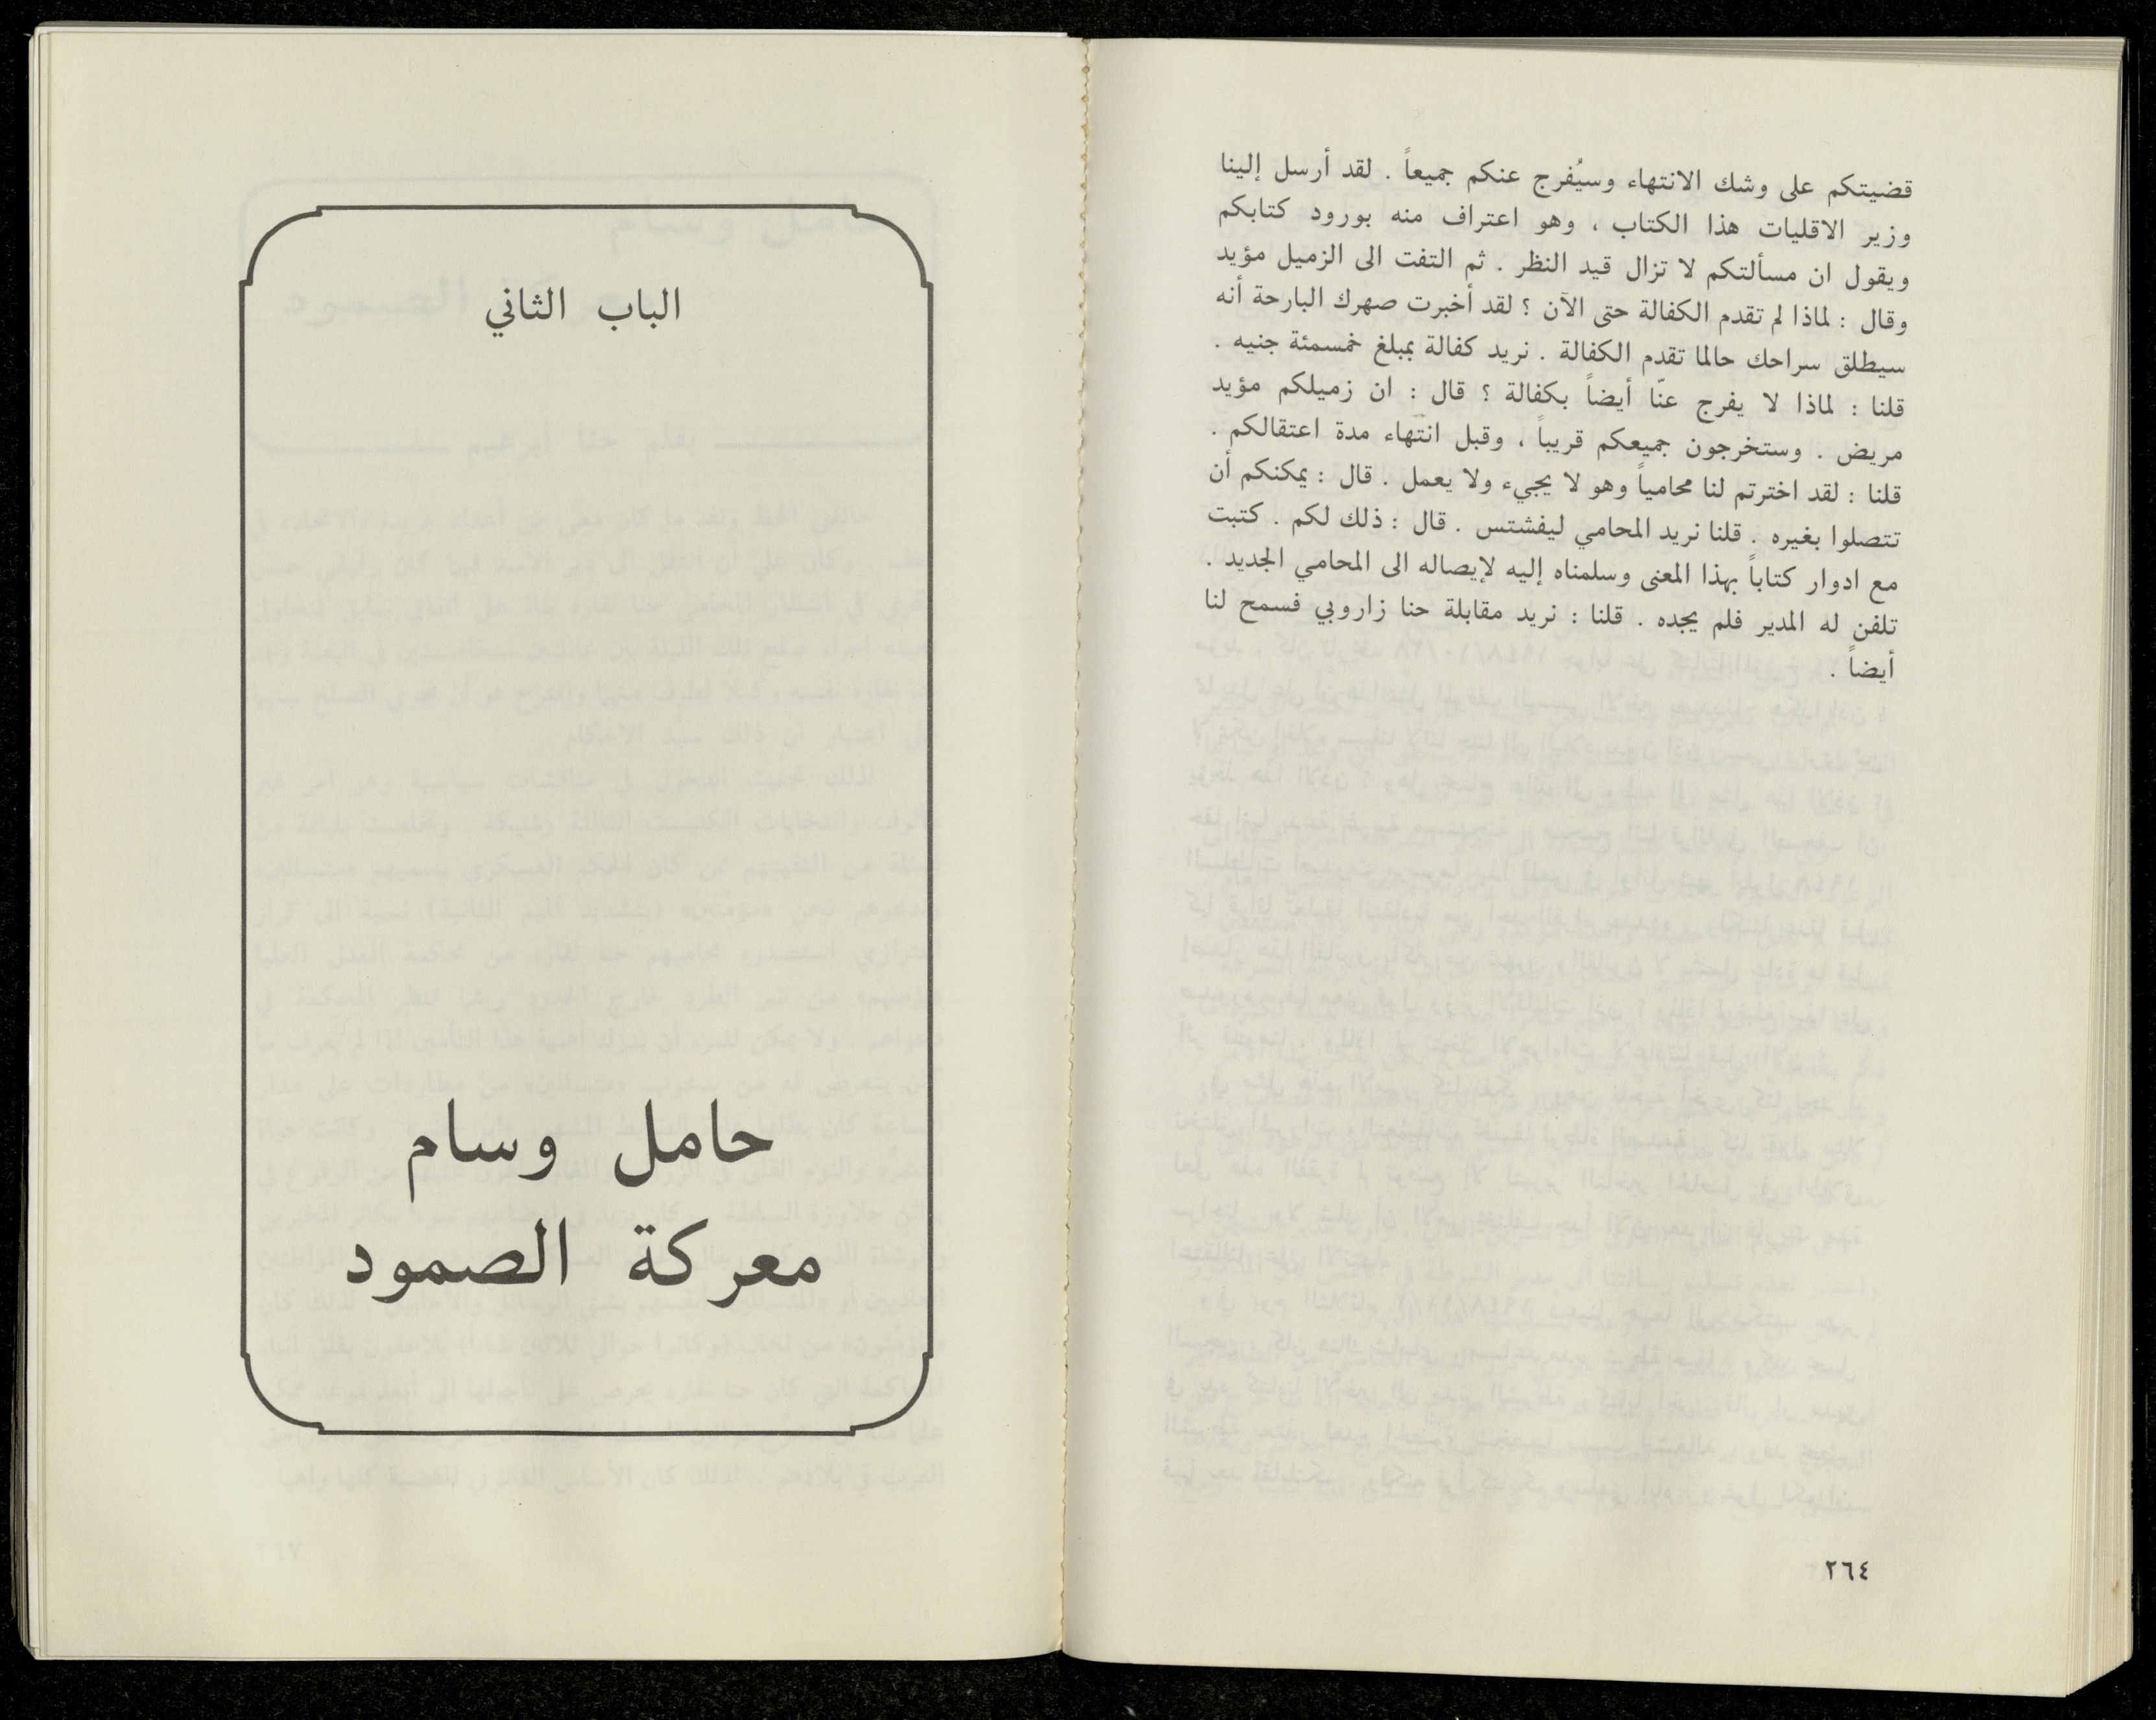 قضيتكم على وشك الانتهاء وسيُفرج عنكم جميعاً . لقد أرسل إلينا
وزير الاقليات هذا الكتاب ، وهو اعتراف منه بورود كتابكم
ويقول ان مسألتكم لا تزال قيد النظر . ثم التفت الى الزميل مؤيد
وقال : لماذا لم تقدم الكفالة حتى الآن ؟ لقد أخبرت صهرك البارحة أنه
سيطلق سراحك حالما تقدم الكفالة . نريد كفالة بمبلغ خمسمئة جنيه .
قلنا : لماذا لا يفرج عنّا أيضاً بكفالة ؟ قال : ان زميلكم مؤيد
مريض . وستخرجون جميعكم قريباً ، وقبل انتهاء مدة اعتقالكم .
قلنا : لقد اخترتم لنا محامياً وهو لا يجيء ولا يعمل . قال : يمكنكم أن
تتصلوا بغيره . قلنا نريد المحامي ليفشتس . قال : ذلك لكم . كتبت
مع ادوار كتاباً بهذا المعنى وسلمناه إليه لإيصاله الى المحامي الجديد .
تلفن له المدير فلم يجده . قلنا : نريد مقابلة حنا زاروبي فسمح لنا
أيضاً .
٢٦٤
الباب الثاني
حامل وسام
معركة الصمود